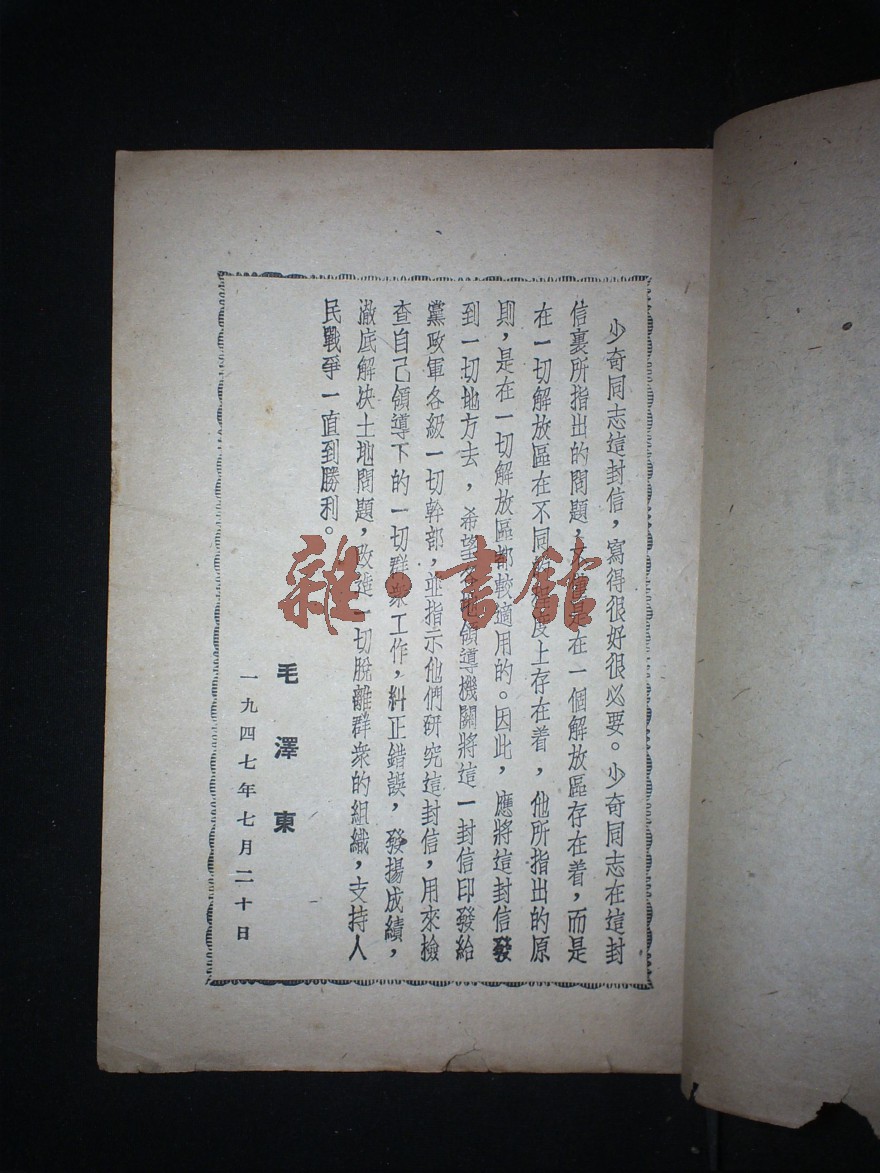 少奇同志這封信，寫得很好很必要。少奇同志在這封
信裏所指出的問題，是在一個解放區存在着，而是
在一切解放區在不同程度上存在着，他所指出的原
則，是在一切解放區都較適用的。因此，應將這封信發
到一切地方去，希望各地領導機關將這一封信印發給
黨政軍各級一切幹部，並指示他們研究這封信，用來檢
查自己領導下的一切群衆工作，糾正錯誤，發揚成績，
澈底解决土地問題，改造一切脫離群衆的組織，支持人
民戰爭一直到勝利。
毛澤東
一九四七年七月二十日
雜·書館